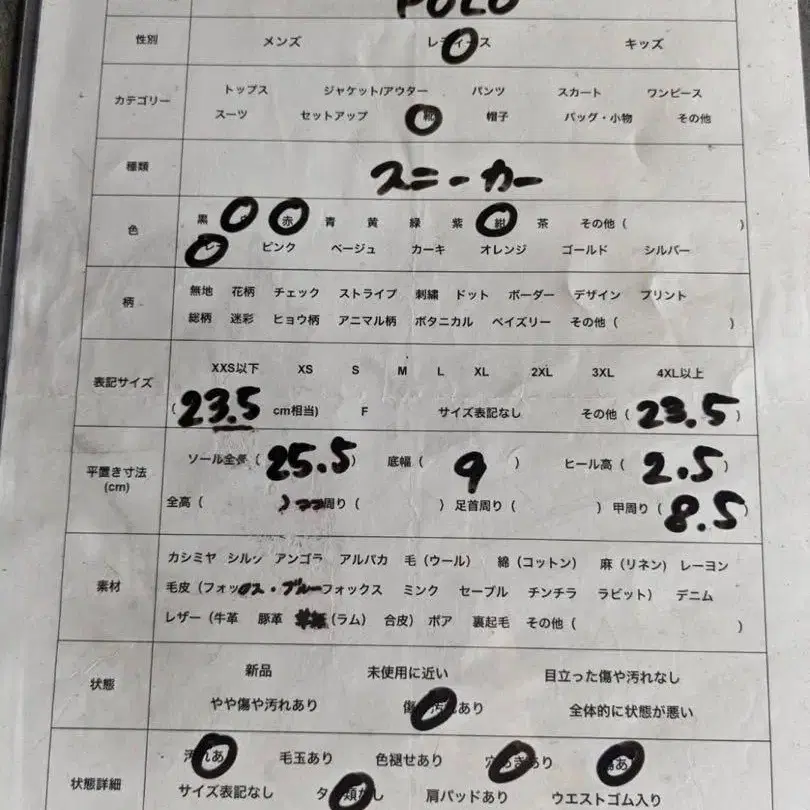 POLO
性別 メンズ レディース キッズ
カテゴリー トップス ジャケット/アウター パンツ スカート ワンピース
スーツ セットアップ 靴 帽子 バッグ・小物 その他
種類 スニーカー
色 黒 白 赤 青 黄 緑 紫 紺 茶 その他（ ）
グレー ピンク ベージュ カーキ オレンジ ゴールド シルバー
柄 無地 花柄 チェック ストライプ 刺繍 ドット ボーダー デザイン プリント
総柄 迷彩 ヒョウ柄 アニマル柄 ボタニカル ペイズリー その他（ ）
表記サイズ XXS以下 XS S M L XL 2XL 3XL 4XL以上
（23.5 cm相当) F サイズ表記なし その他（23.5）
平置き寸法 (cm) ソール全長（25.5） 底幅（9） ヒール高（2.5）
全高（ ） 周り（ ）足首周り（ ）甲周り（8.5）
素材 カシミヤ シルク アンゴラ アルパカ 毛（ウール） 綿（コットン） 麻（リネン） レーヨン
毛皮（フォックス・ブルーフォックス ミンク セーブル チンチラ ラビット） デニム
レザー（牛革 豚革 （ラム） 合皮）ボア 裏起毛 その他（ ）
状態 新品 未使用に近い 目立った傷や汚れなし
やや傷や汚れあり 傷や汚れあり 全体的に状態が悪い
状態詳細 汚れあり 毛玉あり 色褪せあり 穴あきあり 傷あり
サイズ表記なし タグ類なし 肩パッドあり ウエストゴム入り